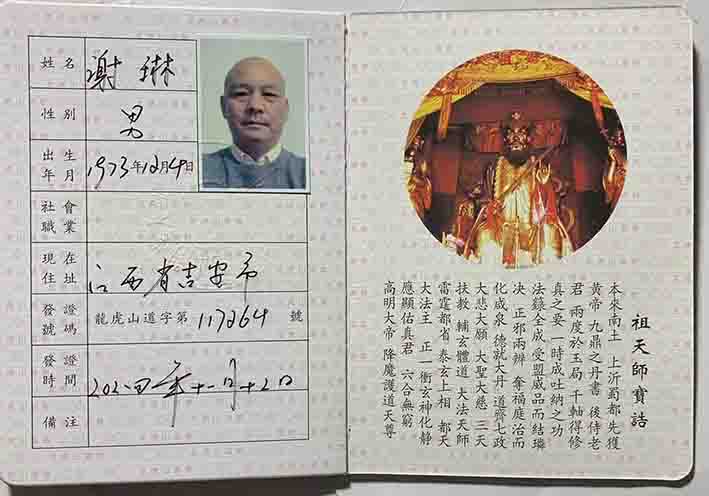 姓名 谢琳
性别 男
出生年月 1973年12月4日
社會職業
現在住址 江西省吉安市
發證號碼 龍虎山道字第 117264 號
發證時間
備注
祖天師寶誥
本來南土 上沂蜀都 先獲
黃帝 九鼎之丹書 後侍老
君 兩度於玉局 千軸得修
真之要 一時成吐納之功
法籙全成 受盟威品而結璘
决 正邪兩辨 奪福庭治而
化成泉 德就大丹 道齊七政
大悲大願 大聖大慈 三天
扶教 輔玄體道 大法天師
雷霆都省 泰玄上相 都天
大法王 正一衝玄神化靜
應顯佑真君 六合無窮
高明大帝 降魔護道天尊